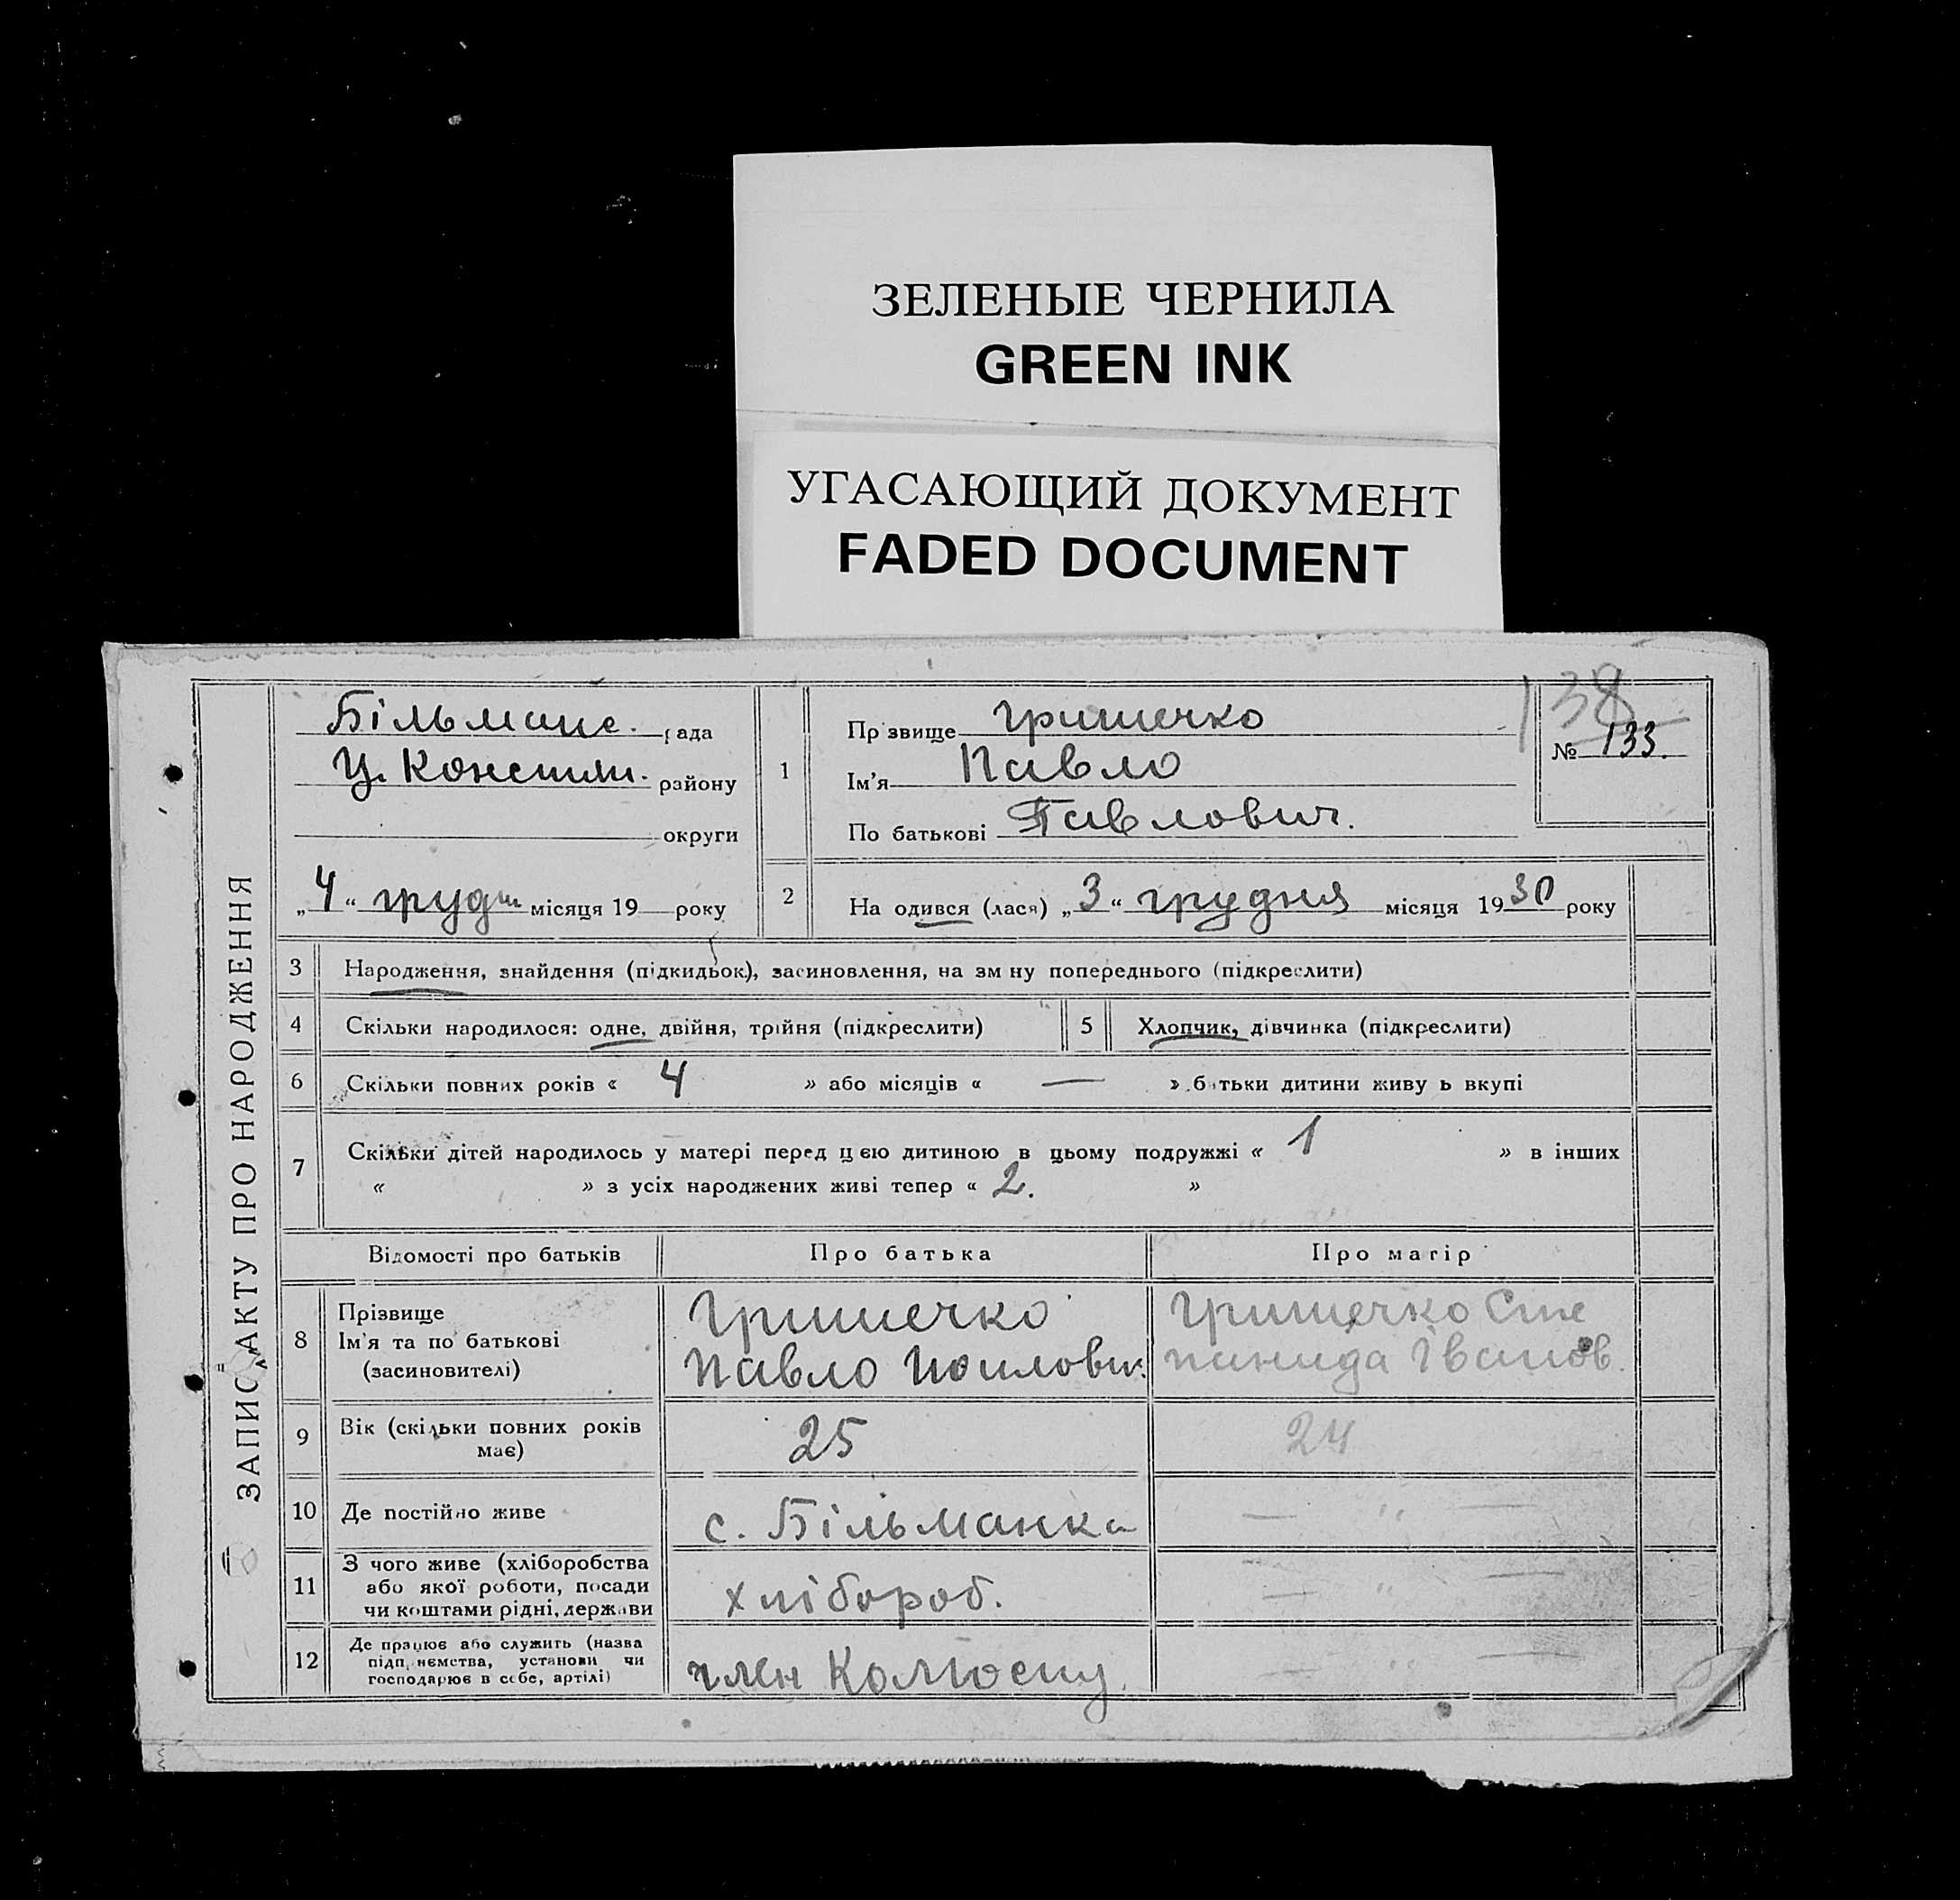 ЗЕЛЕНЫЕ ЧЕРНИЛА
GREEN INK
УГАСАЮЩИЙ ДОКУМЕНТ
FADED DOCUMENT
ЗАПИС АКТУ ПРО НАРОДЖЕННЯ
Більманс. рада
Ц. Констпт. району
округи
„4“ грудня місяця 19 року
138
№ 133.
1 Прізвище Гришечко
Ім'я Павло
По батькові Павлович.
2 Народився (лася) „3“ грудня місяця 1930 року
3 Народження, знайдення (підкидьок), засиновлення, на зміну попереднього (підкреслити)
4 Скільки народилося: одне, двійня, трійня (підкреслити)
5 Хлопчик, дівчинка (підкреслити)
6 Скільки повних років « 4 » або місяців « — » батьки дитини живуть вкупі
7 Скільки дітей народилось у матері перед цією дитиною в цьому подружжі « 1 » в інших
« » з усіх народжених живі тепер « 2. »
Відомості про батьків Про батька Про матір
8 Прізвище
Ім'я та по батькові
(засиновителі)
Гришечко
Павло
Гришечко Сте
панида Іванов.
9 Вік (скільки повних років
має)
25
24
10 Де постійно живе
с. Більманка
— " —
11 З чого живе (хліборобства
або якої роботи, посади
чи коштами рідні, держави
хлібороб.
— " —
12 Де працює або служить (назва
підприємства, установи чи
господарює в себе, артілі)
член Колгоспу.
— " —